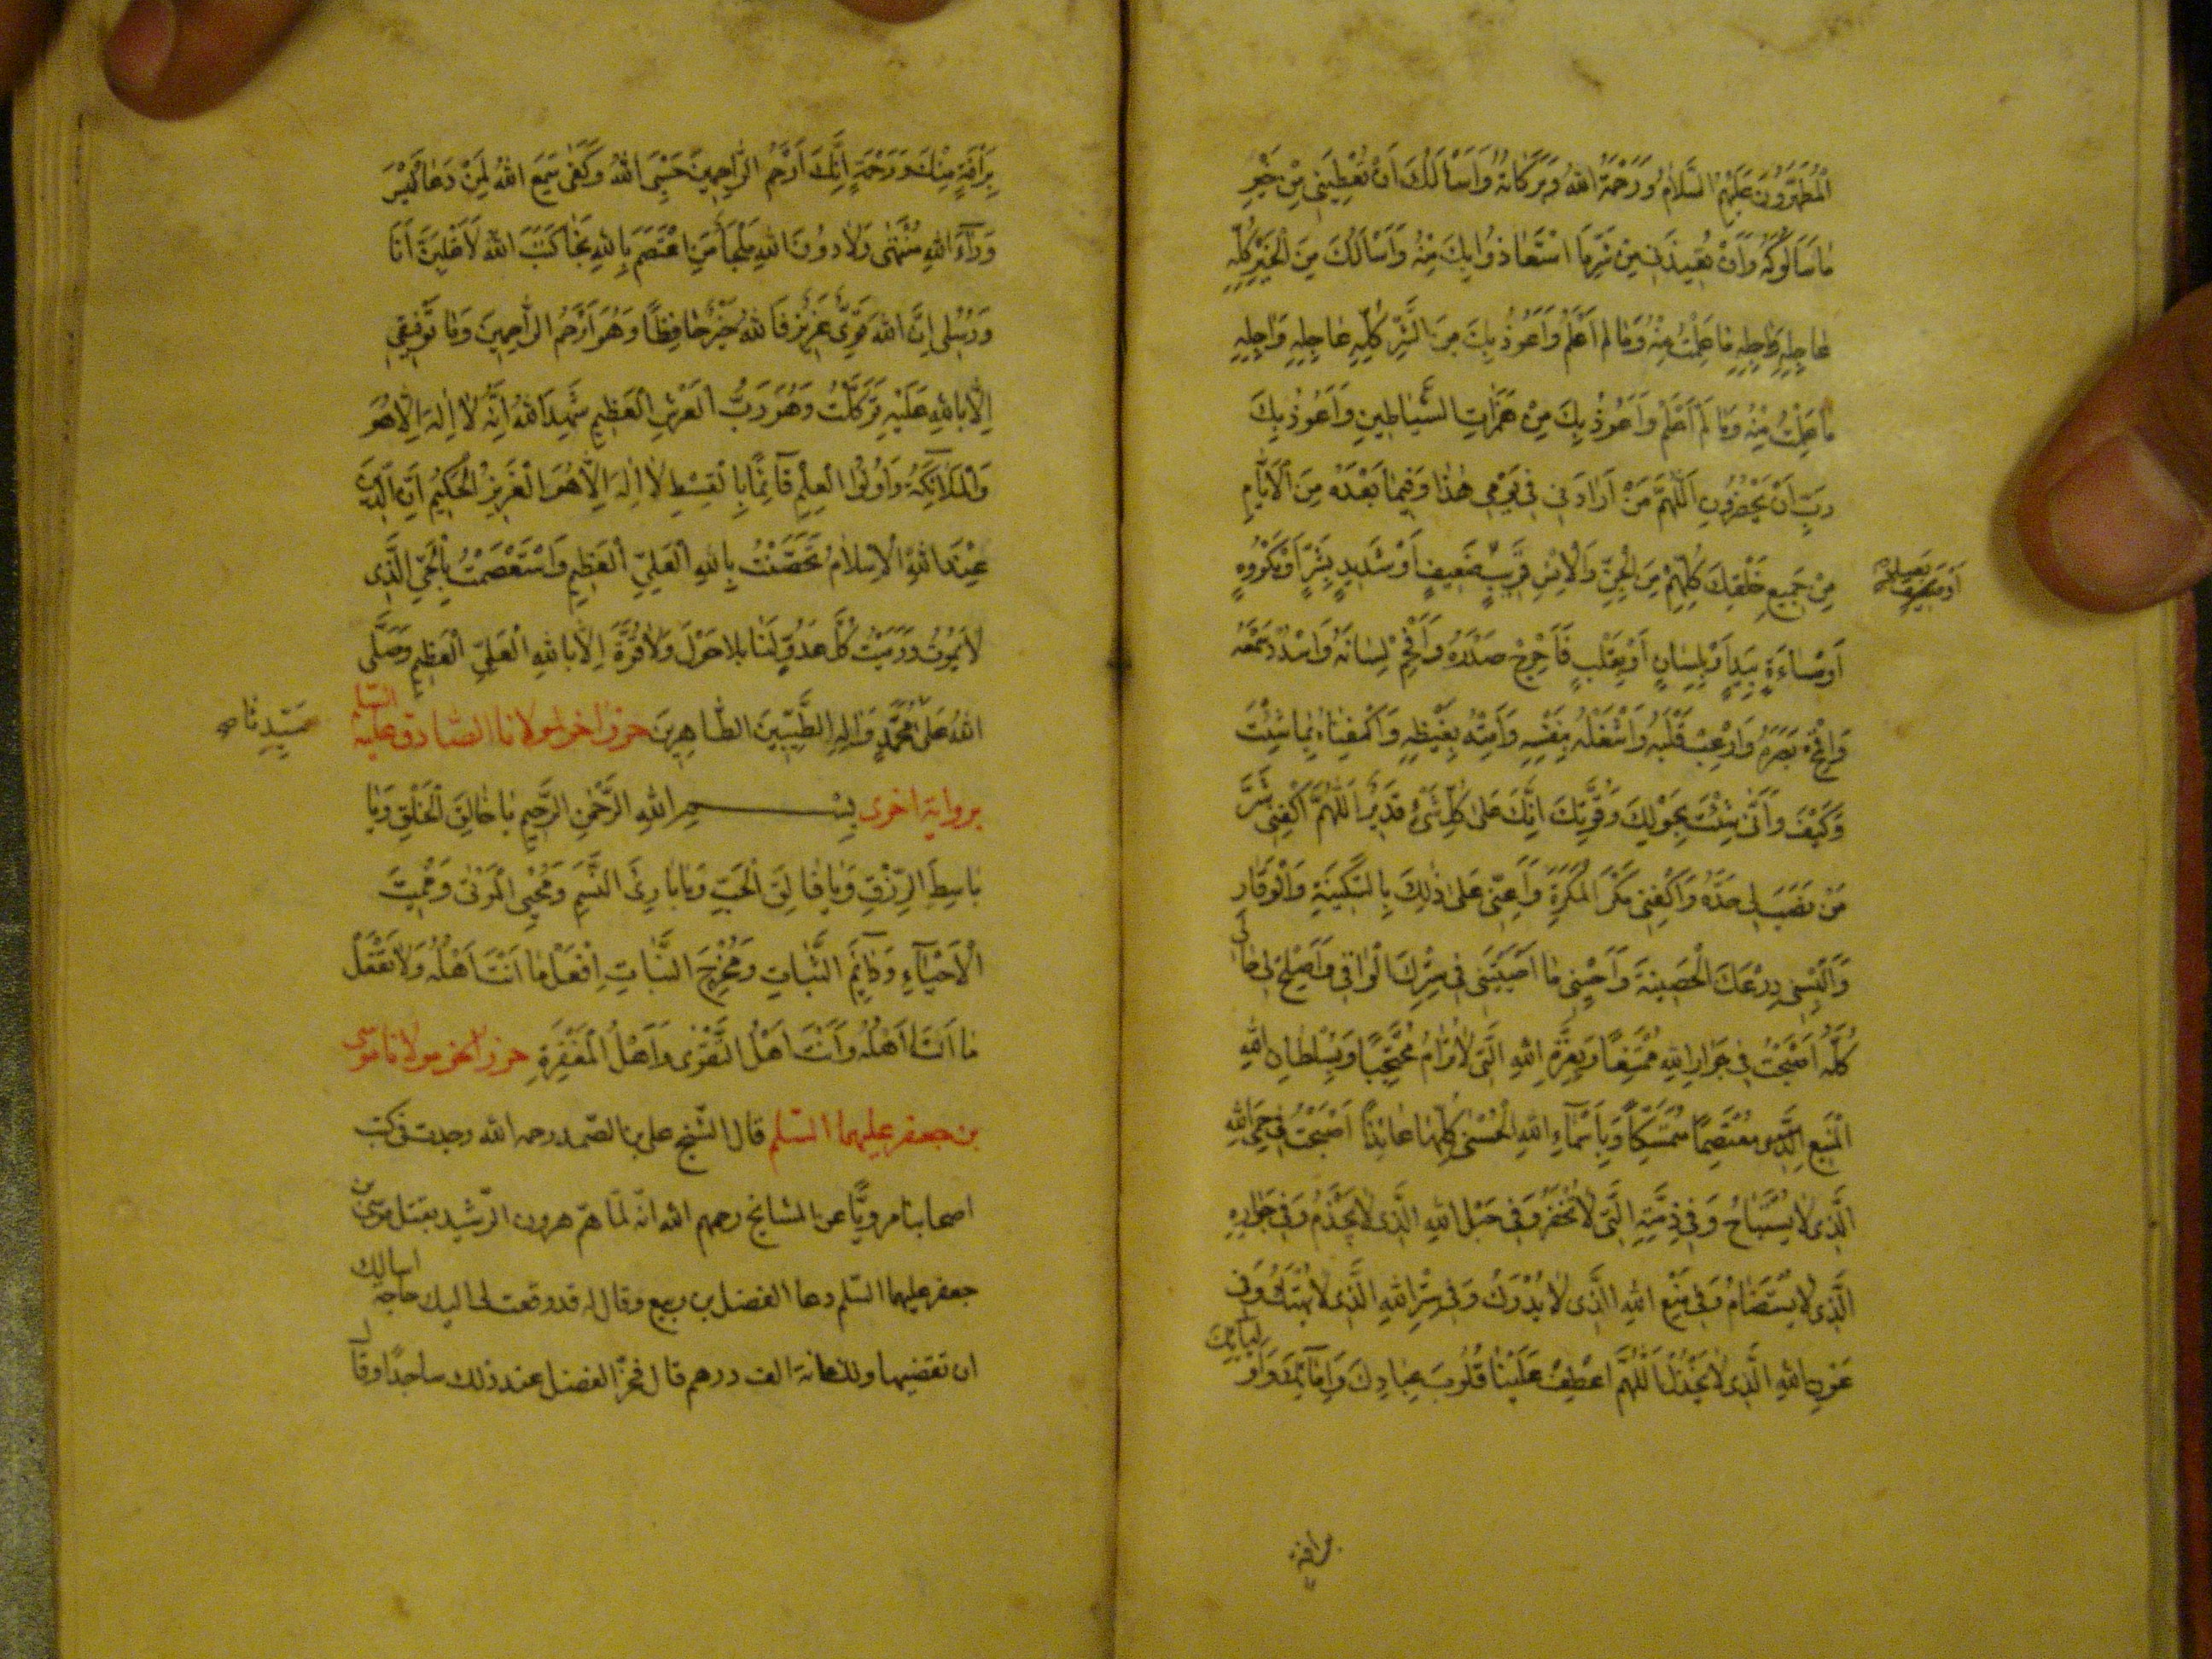 الْمُطَهَّرُونَ عَلَيْهِمُ السَّلَامُ وَرَحْمَةُ اللهِ وَبَرَكَاتُهُ وَاَسْاَلُكَ اَنْ تُعْطِيَنِي مِنْ خَيْرِ
مَا سَاَلُوكَهُ وَاَنْ تُعِيذَنِي مِنْ شَرِّ مَا اسْتَعَاذُوا بِكَ مِنْهُ وَاَسْاَلُكَ مِنَ الْخَيْرِ كُلِّهِ
عَاجِلِهِ وَآجِلِهِ مَا عَلِمْتُ مِنْهُ وَمَا لَمْ اَعْلَمْ وَاَعُوذُ بِكَ مِنَ الشَّرِّ كُلِّهِ عَاجِلِهِ وَآجِلِهِ
مَا عَلِمْتُ مِنْهُ وَمَا لَمْ اَعْلَمْ وَاَعُوذُ بِكَ مِنْ هَمَزَاتِ الشَّيَاطِينِ وَاَعُوذُ بِكَ
رَبِّ اَنْ يَحْضُرُونِ اَللّٰهُمَّ مَنْ اَرَادَنِي فِي يَوْمِي هٰذَا وَفِيمَا بَعْدَهُ مِنَ الْاَيَّامِ
مِنْ جَمِيعِ خَلْقِكَ كُلِّهِمْ مِنَ الْجِنِّ وَالْاِنْسِ قَرِيبٍ ضَعِيفٍ اَوْ شَدِيدٍ بِشَرٍّ اَوْ مَكْرُوهٍ
اَوْ مَسَاءَةٍ بِيَدٍ اَوْ بِلِسَانٍ اَوْ بِقَلْبٍ فَاَحْرِجْ صَدْرَهُ وَاَفْحِمْ لِسَانَهُ وَاسْدُدْ سَمْعَهُ
وَاقْمَحْ بَصَرَهُ وَارْعِبْ قَلْبَهُ وَاشْغَلْهُ بِنَفْسِهِ وَاَمِتْهُ بِغَيْظِهِ وَاكْفِنَاهُ بِمَا شِئْتَ
وَكَيْفَ وَاَنّٰى شِئْتَ بِحَوْلِكَ وَقُوَّتِكَ اِنَّكَ عَلٰى كُلِّ شَيْءٍ قَدِيرٌ اَللّٰهُمَّ اكْفِنِي شَرَّ
مَنْ نَصَبَ لِي حَدَّهُ وَاكْفِنِي مَكْرَ الْمَكَرَةِ وَاَعِنِّي عَلٰى ذٰلِكَ بِالسَّكِينَةِ وَالْوَقَارِ
وَاَلْبِسْنِي دِرْعَكَ الْحَصِينَةَ وَاَحْيِنِي مَا اَحْيَيْتَنِي فِي سِتْرِكَ الْوَاقِي وَاَصْلِحْ لِي حَالِي
كُلَّهُ اَصْبَحْتُ فِي جِوَارِ اللهِ مُمْتَنِعًا وَبِعِزَّةِ اللهِ الَّتِي لَا تُرَامُ مُحْتَجِبًا وَبِسُلْطَانِ اللهِ
الْمَنِيعِ مُعْتَصِمًا مُتَمَسِّكًا وَبِاَسْمَاءِ اللهِ الْحُسْنٰى كُلِّهَا عَائِذًا اَصْبَحْتُ فِي حِمَى اللهِ
الَّذِي لَا يُسْتَبَاحُ وَفِي ذِمَّتِهِ الَّتِي لَا تُخْفَرُ وَفِي حَبْلِ اللهِ الَّذِي لَا يُجْذَمُ وَفِي جِوَارِهِ
الَّذِي لَا يُسْتَضَامُ وَفِي مَنْعِ اللهِ الَّذِي لَا يُدْرَكُ وَفِي سِتْرِ اللهِ الَّذِي لَا يُهْتَكُ وَفِي
عَوْنِ اللهِ الَّذِي لَا يُخْذَلُ اَللّٰهُمَّ اعْطِفْ عَلَيْنَا قُلُوبَ عِبَادِكَ وَاِمَائِكَ وَاَوْلِيَائِكَ
برافة
بِرَاْفَةٍ مِنْكَ وَرَحْمَةٍ اِنَّكَ اَرْحَمُ الرَّاحِمِينَ حَسْبِيَ اللهُ وَكَفٰى سَمِعَ اللهُ لِمَنْ دَعَا لَيْسَ
وَرَاءَ اللهِ مُنْتَهٰى وَلَا دُونَ اللهِ مَلْجَأٌ مَنِ اعْتَصَمَ بِاللهِ نَجَا كَتَبَ اللهُ لَاَغْلِبَنَّ اَنَا
وَرُسُلِي اِنَّ اللهَ قَوِيٌّ عَزِيزٌ فَاللهُ خَيْرٌ حَافِظًا وَهُوَ اَرْحَمُ الرَّاحِمِينَ وَمَا تَوْفِيقِي
اِلَّا بِاللهِ عَلَيْهِ تَوَكَّلْتُ وَهُوَ رَبُّ الْعَرْشِ الْعَظِيمِ شَهِدَ اللهُ اَنَّهُ لَا اِلٰهَ اِلَّا هُوَ
وَالْمَلَائِكَةُ وَاُولُوا الْعِلْمِ قَائِمًا بِالْقِسْطِ لَا اِلٰهَ اِلَّا هُوَ الْعَزِيزُ الْحَكِيمُ اِنَّ الدِّينَ
عِنْدَ اللهِ الْاِسْلَامُ تَحَصَّنْتُ بِاللهِ الْعَلِيِّ الْعَظِيمِ وَاسْتَعْصَمْتُ بِالْحَيِّ الَّذِي
لَا يَمُوتُ وَرَمَيْتُ كُلَّ عَدُوٍّ لَنَا بِلَا حَوْلَ وَلَا قُوَّةَ اِلَّا بِاللهِ الْعَلِيِّ الْعَظِيمِ وَصَلَّى
اللهُ عَلٰى مُحَمَّدٍ وَاٰلِهِ الطَّيِّبِينَ الطَّاهِرِينَ حرز اخر لمولانا الصّادق عليه السّلم
سَيّدِنا صح
برواية اخرى بِسْمِ اللهِ الرَّحْمٰنِ الرَّحِيمِ يَا خَالِقَ الْخَلْقِ وَيَا
بَاسِطَ الرِّزْقِ وَيَا فَالِقَ الْحَبِّ وَيَا بَارِئَ النَّسَمِ وَمُحْيِيَ الْمَوْتٰى وَمُمِيتَ
الْاَحْيَاءِ وَدَائِمَ الثَّبَاتِ وَمُخْرِجَ النَّبَاتِ اِفْعَلْ بِي مَا اَنْتَ اَهْلُهُ وَلَا تَفْعَلْ
مَا اَنَا اَهْلُهُ وَاَنْتَ اَهْلُ التَّقْوٰى وَاَهْلُ الْمَغْفِرَةِ حرز اخر مولانا موسى
بن جعفر عليهما السّلم قال الشّيخ على بن عبد الصّمد رحمه الله وجدت فى كتب
اصحابنا مرويًّا عن المشايخ رحمهم الله انّه لمّا همّ هرون الرّشيد بقتل موسى بن
جعفر عليهما السّلم دعا الفضل بن ربيع وقال له قد وقعت لى اليك حاجة اسالك
ان تقضيها ولك مائة الف درهم قال فخرّ الفضل عند ذلك ساجدًا وقال